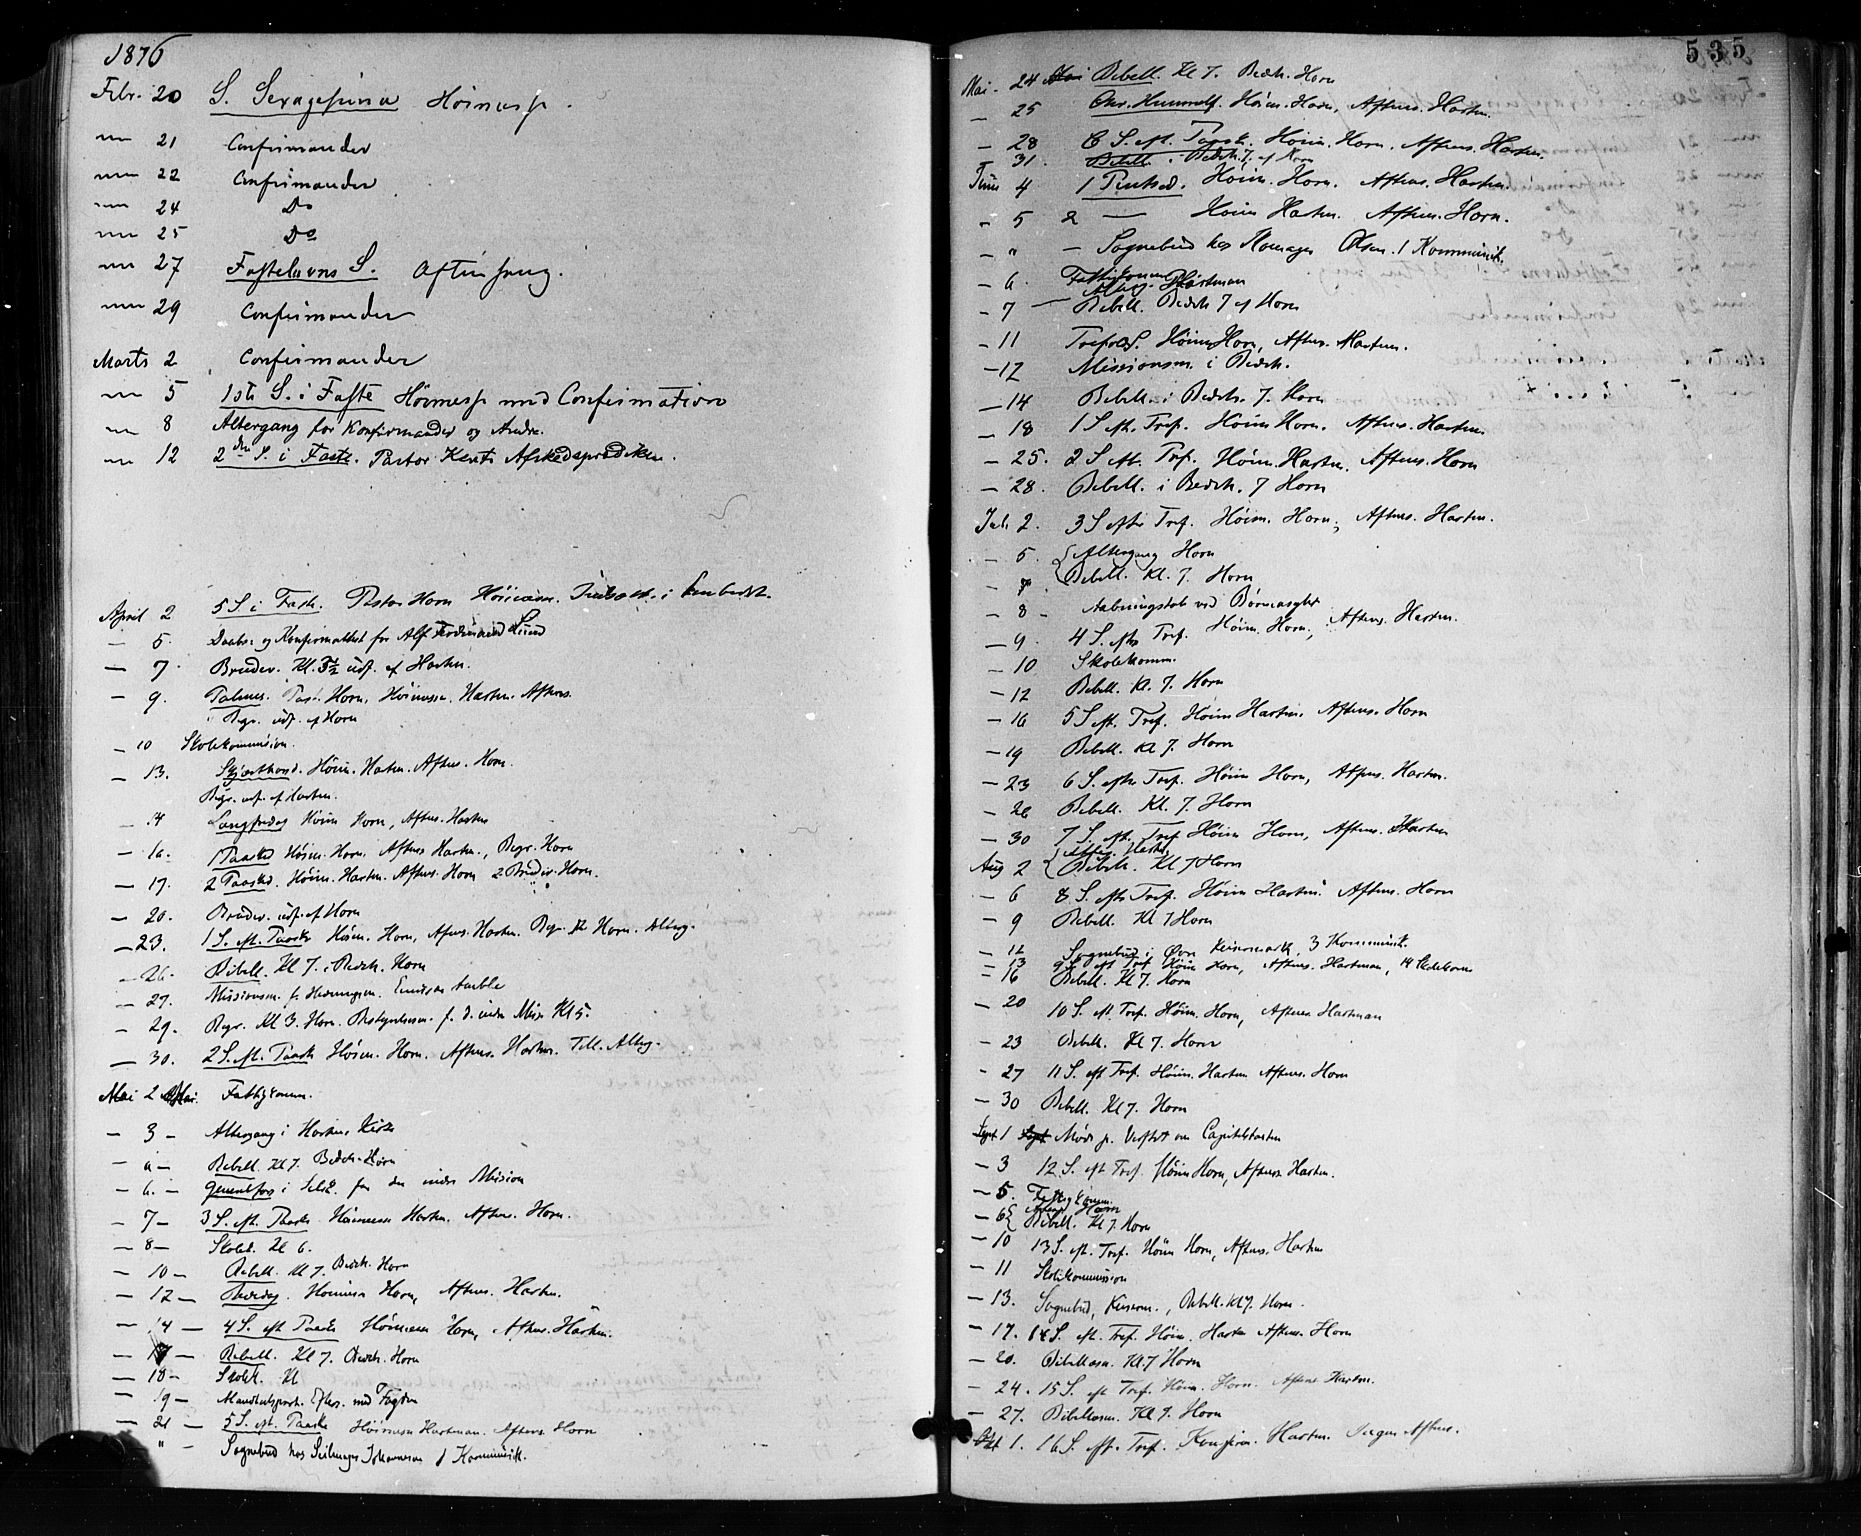 1876
Febr. 20 S. Sexagesima Höimesse.
" 21 Confirmander
" 22 Confirmander
" 24 Do
" 25 Do
" 27 Fastelavns S. Aftensang.
" 29 Confirmander
Marts 2 Confirmander
" 5 1ste S. i Faste Höimesse med Confirmation
" 8 Altergang for Konfirmander og Andre.
" 12 2den S. i Faste. Pastor Afskedsprædiken.
April 2 5 S. i Fast. Pastor Horn Höimesse. Indsat i Embedet.
— 5. Daabs. og Konfirmattest for Alf Ferdinand Lund
— 7. Brudev. Kl. 3½ udf. af Hartm.
— 9. Palmes. Past. Horn, Höimesse. Hartm. Aftens.
Begr. udf. af Horn
— 10 Skolekommission.
— 13. Skjærthorsd. Höim. Hartm. Aftens. Horn.
Begr. udf. af Hartm.
— 14 Langfredag Höim Horn, Aftens. Hartm
— 16. 1 Paasked Höim. Horn. Aftens Hartm., Begr. Horn
— 17. 2 Paasked. Höim. Hartm. Aftens. Horn 2 Brudev. Horn.
— 20. Brudev. udf. af Horn
— 23. 1 S. eft. Paaske Höim. Horn, Aftens. Hartm. Begr. Horn. Alterg.
— 26. Bibell. Kl 7. i Bedeh. Horn
— 27. Missionsm. f. Hedningem.
— 29. Begr. Kl 3. Horn. Bestyrelsesm. f. d. indre Miss. Kl 5.
— 30. 2 S. eft. Paaske Höim. Horn. Aftens. Hartm. Alterg.
Mai 2 Mai. Fattigkomm.
— 3 — Altergang i Kirke
— Bibell. Kl 7. Bedeh. Horn
— 6. — Generalfors. i Selsk. for den indre Mission
— 7 — 3 S. eft. Paaske Höimesse Hartm. Aftens. Horn.
— 8 — Skolek. Kl 6.
— 10 — Bibell. Kl 7. Bedeh. Horn
— 12 — Bededag. Höimesse Horn, Aftens. Hartm.
— 14 — 4 S. eft Paaske Höimesse Horn, Aftens. Hartm.
— 17 — Bibell. Kl 7. Bedeh. Horn
— 18 — Skolek. Kl
— 19 — med Fogden
— 21 — 5 S. eft. Paaske Höimesse Hartman. Aftens Horn
" — Sognebud hos Johannesen 1 Kommunik.
535
Mai. 24 Mai Bibell. Kl 7. Bedeh. Horn
— 25 Chr. Himmelf. Höim. Horn, Aftens. Hartm.
— 28 6 S. eft. Paaske. Höim. Horn. Aftens. Hartm.
— 31. Bibell. i Bedeh. 7. af Horn
Juni 4 1 Pintsed. Höim. Horn. Aftens. Hartm.
" 5 2 — Höim Hartm. Aftens. Horn.
" " — Sognebud hos Olsen. 1 Kommunik.
— 6. Fattigkomm
Alterg. Hartman
— 7 — Bibell. Bedeh 7 af Horn
— 11 Trefold. Höim Horn, Aftens. Hartm.
— 12 Missionsm. i Bedeh.
— 14 Bibell. i Bedeh. 7. Horn
— 18 1 S eft. Tref. Höim Horn. Aftens. Hartm.
— 25. 2 S eft. Tref. Höim. Hartm. Aftens. Horn
— 28. Bibell. i Bedeh. 7 Horn
Juli 2. 3 S efter Tref. Höim. Horn; Aftens. Hartm.
— 5. Altergang Horn
— Bibell. Kl. 7. Horn
— 8 — Aabningstale ved Börneasylet
— 9. 4 S. efter Tref. Höim. Horn, Aftens. Hartm.
— 10 Skolekomm.
— 12 Bibell. Kl. 7. Horn
— 16 5 S eft. Tref. Höim Hartm. Aftens. Horn
— 19 Bibell. Kl 7. Horn
— 23 6 S. efter Tref. Höim Horn, Aftens. Hartm.
— 26 Bibell. Kl. 7. Horn
— 30 7 S. eft. Tref Höim Horn, Aftens. Hartm
Alterg. Hartm.
Aug 2 Bibell. Kl 7 Horn
— 6 8 S. efter Tref. Höim Hartm. Aftens. Horn
— 9 Bibell. Kl 7 Horn
— 12 Sognebud i Övre 3 Kommunik.
— 13 9 S. eft Tref Höim Horn, Aftens. Hartman,
— 16 Bibell. Kl 7. Horn
— 20 10 S. eft Tref. Höim. Horn, Aftens Hartman
— 23 Bibell. Kl 7. Horn
— 27 11 S. eft Tref. Höim. Hartm Aftens. Horn
— 30 Bibell. Kl 7. Horn
Sept 1 Sept. Möde p. om
— 3 12 S. eft Tref. Höim Horn, Aftens Hartm.
— 5. Fattigkomm.
— 6 Alterg Horn
Bibell. Kl 7. Horn
— 10 13 S. eft. Tref. Höim Horn, Aftens. Hartm
— 11 Skolekommission
— 13. Sognebud, Bibell. Kl 7. Horn.
— 17. 14 S. eft. Tref. Höim. Hartm Aftens. Horn
— 20. Bibellæsn. Kl 7 Horn
— 24. 15 S. eft Tref. Höim. Horn. Aftens Hartm.
— 27. Bibellæsn. Kl 7. Horn
Okt 1. 16 S. eft. Tref. Hartm. Aftens.